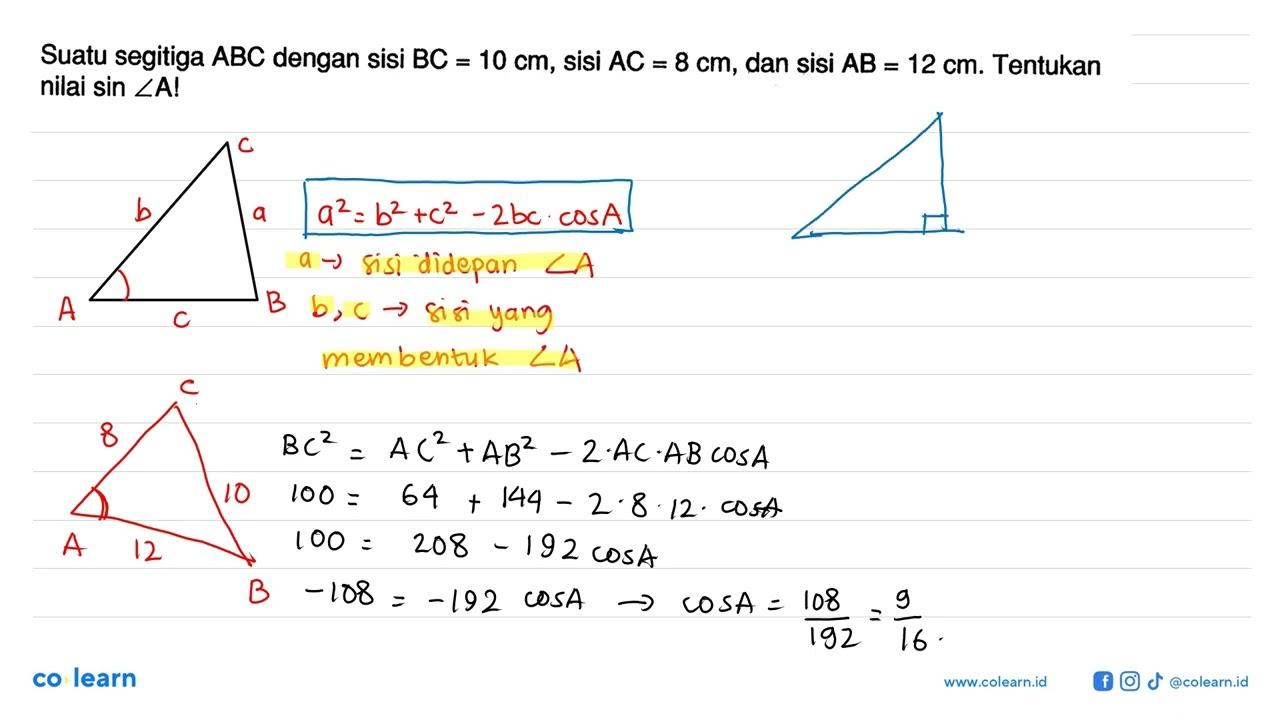 Suatu segitiga ABC dengan sisi BC = 10 cm, sisi AC = 8 cm, dan sisi AB = 12 cm. Tentukan
nilai sin ∠A!
C
b
a
A
c
B
a² = b² + c² - 2bc · cos A
a → sisi didepan ∠A
b, c → sisi yang
membentuk ∠A
C
8
10
A
12
B
BC² = AC² + AB² - 2·AC·AB cos A
100 = 64 + 144 - 2·8·12· cos A
100 = 208 - 192 cos A
-108 = -192 cos A → cos A = 108/192 = 9/16.
co learn
www.colearn.id
@colearn.id